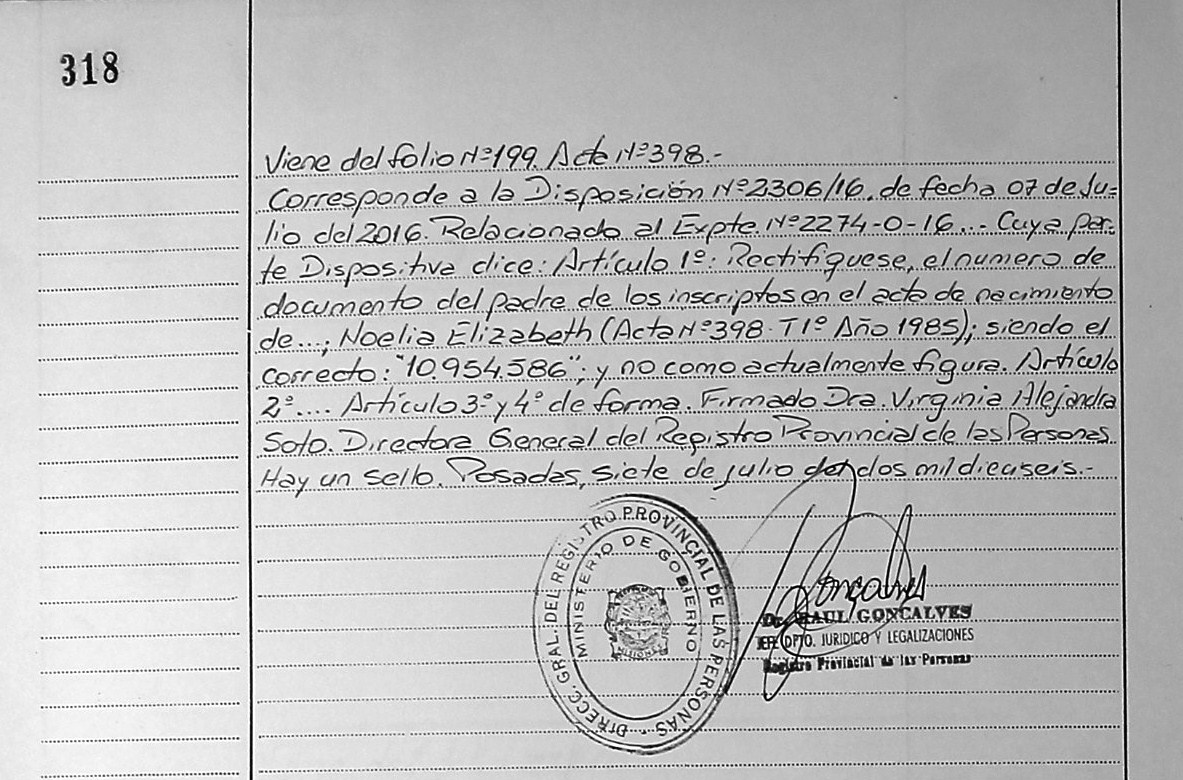 318
Viene del folio Nº199. Acta Nº398.-
Corresponde a la Disposición Nº2306/16. de fecha 07 de Ju=
lio del 2016. Relacionado al Expte Nº2274-0-16... Cuya par-
te Dispositiva dice: Artículo 1º: Rectifíquese, el numero de
documento del padre de los inscriptos en el acta de nacimiento
de...; Noelia Elizabeth (Acta Nº398 T1º Año 1985); siendo el
correcto: "10.954.586"; y no como actualmente figura. Artículo
2º.... Artículo 3º y 4º de forma. Firmado Dra. Virginia Alejandra
Soto. Directora General del Registro Provincial de las Personas.
Hay un sello. Posadas, siete de julio del dos mil dieciseis.-
DIRECC. GRAL. DEL REGISTRO PROVINCIAL DE LAS PERSONAS
MINISTERIO DE GOBIERNO
MISIONES
Goncalves
Dr. RAUL GONCALVES
JEFE DPTO. JURIDICO Y LEGALIZACIONES
Registro Provincial de las Personas